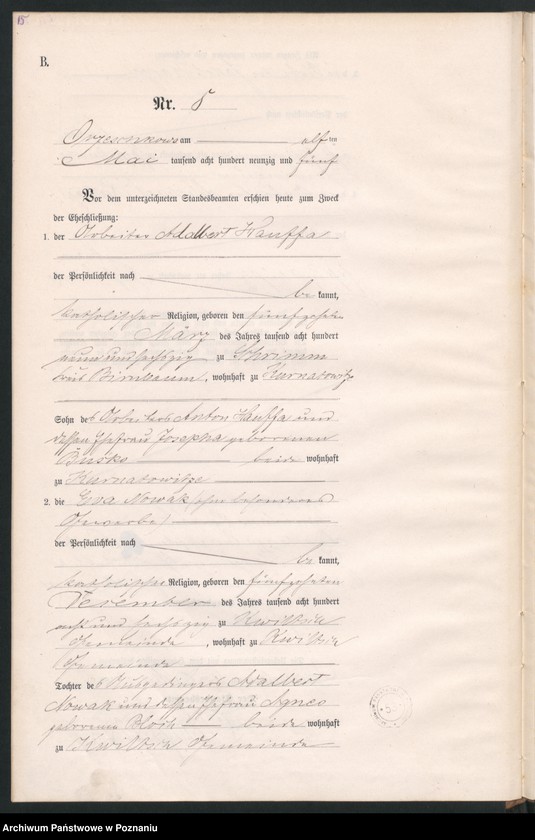 15
B.
Nr. 8
Orzeschkowo am elf ten
Mai tausend acht hundert neunzig und fünf
Vor dem unterzeichneten Standesbeamten erschien heute zum Zweck
der Eheschließung:
1. der Arbeiter Adalbert Hauffa
der Persönlichkeit nach
be kannt,
katholischer Religion, geboren den fünfzehnten
März des Jahres tausend acht hundert
neun und sechszig zu Schrimm
Kreis Birnbaum, wohnhaft zu Kurnatowitze
Sohn des Arbeiters Anton Hauffa und
dessen Ehefrau Josepha geborenen
Busko beide wohnhaft
zu Kurnatowitze
2. die Eva Nowak (ohne besonderes
Gewerbe)
der Persönlichkeit nach
be kannt,
katholischer Religion, geboren den fünfzehnten
Dezember des Jahres tausend acht hundert
acht und sechszig zu Kwiltsch
Gemeinde, wohnhaft zu Kwiltsch
Gemeinde
Tochter des Ausgedingers Adalbert
Nowak und dessen Ehefrau Agnes
geborene Bloch beide wohnhaft
zu Kwiltsch Gemeinde
Archiwum Państwowe w Poznaniu